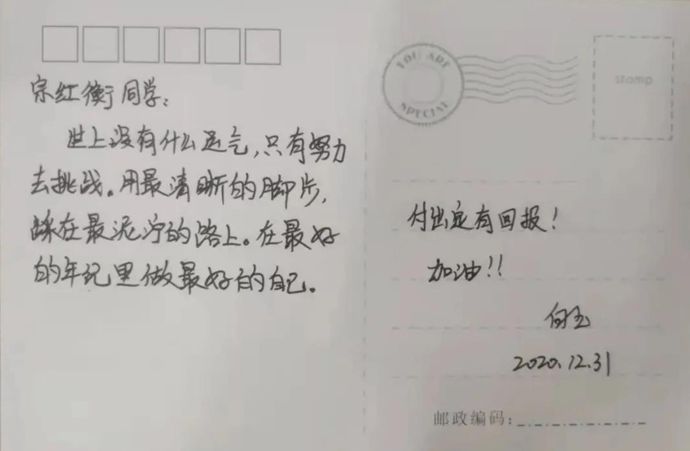 宗红衡同学：
世上没有什么运气，只有努力
去挑战。用最清晰的脚步，
踩在最泥泞的路上。在最好
的年纪里做最好的自己。
YOU ARE
SPECIAL
stamp
付出定有回报！
加油！！
2020.12.31
邮政编码：